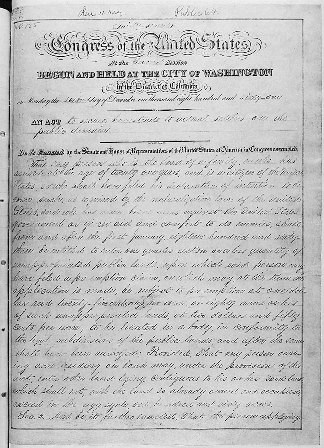 Congress of the United States,
At the Second Session
BEGUN AND HELD AT THE CITY OF WASHINGTON
in the District of Columbia
on Monday the day of December one thousand eight hundred and sixty-one
AN ACT to secure homesteads to actual settlers on the
public domain.
Be it Enacted by the Senate and House of Representatives of the United States of America in Congress assembled,
That any person who is the head of a family, or who has
arrived at the age of twenty one years, and is a citizen of the United
States, or who shall have filed his declaration of intention to be-
come such, as required by the naturalization laws of the United
States, and who has never borne arms against the United States
government or given aid and comfort to its enemies, shall,
from and after the first January, eighteen hundred and sixty-
three, be entitled to enter one quarter section or a less quantity of
unappropriated public lands, upon which said person may
have filed a preemption claim, or which may, at the time the
application is made, be subject to preemption at one dol-
lar and twenty-five cents, or less, per acre; or eighty acres or less
of such unappropriated lands, at two dollars and fifty
cents per acre, to be located in a body, in conformity to
the legal subdivisions of the public lands, and after the same
shall have been surveyed: Provided, That any person own-
ing and residing on land may, under the provisions of this
act, enter other land lying contiguous to his or her said land,
which shall not, with the land so already owned and occupied,
exceed in the aggregate one hundred and sixty acres.
Sec. 2. And be it further enacted, That the person applying